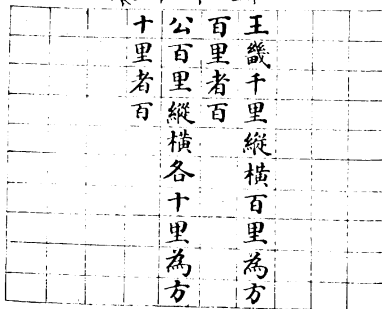 王畿千里縱橫百里為方
百里者百
公百里縱橫各十里為方
十里者百